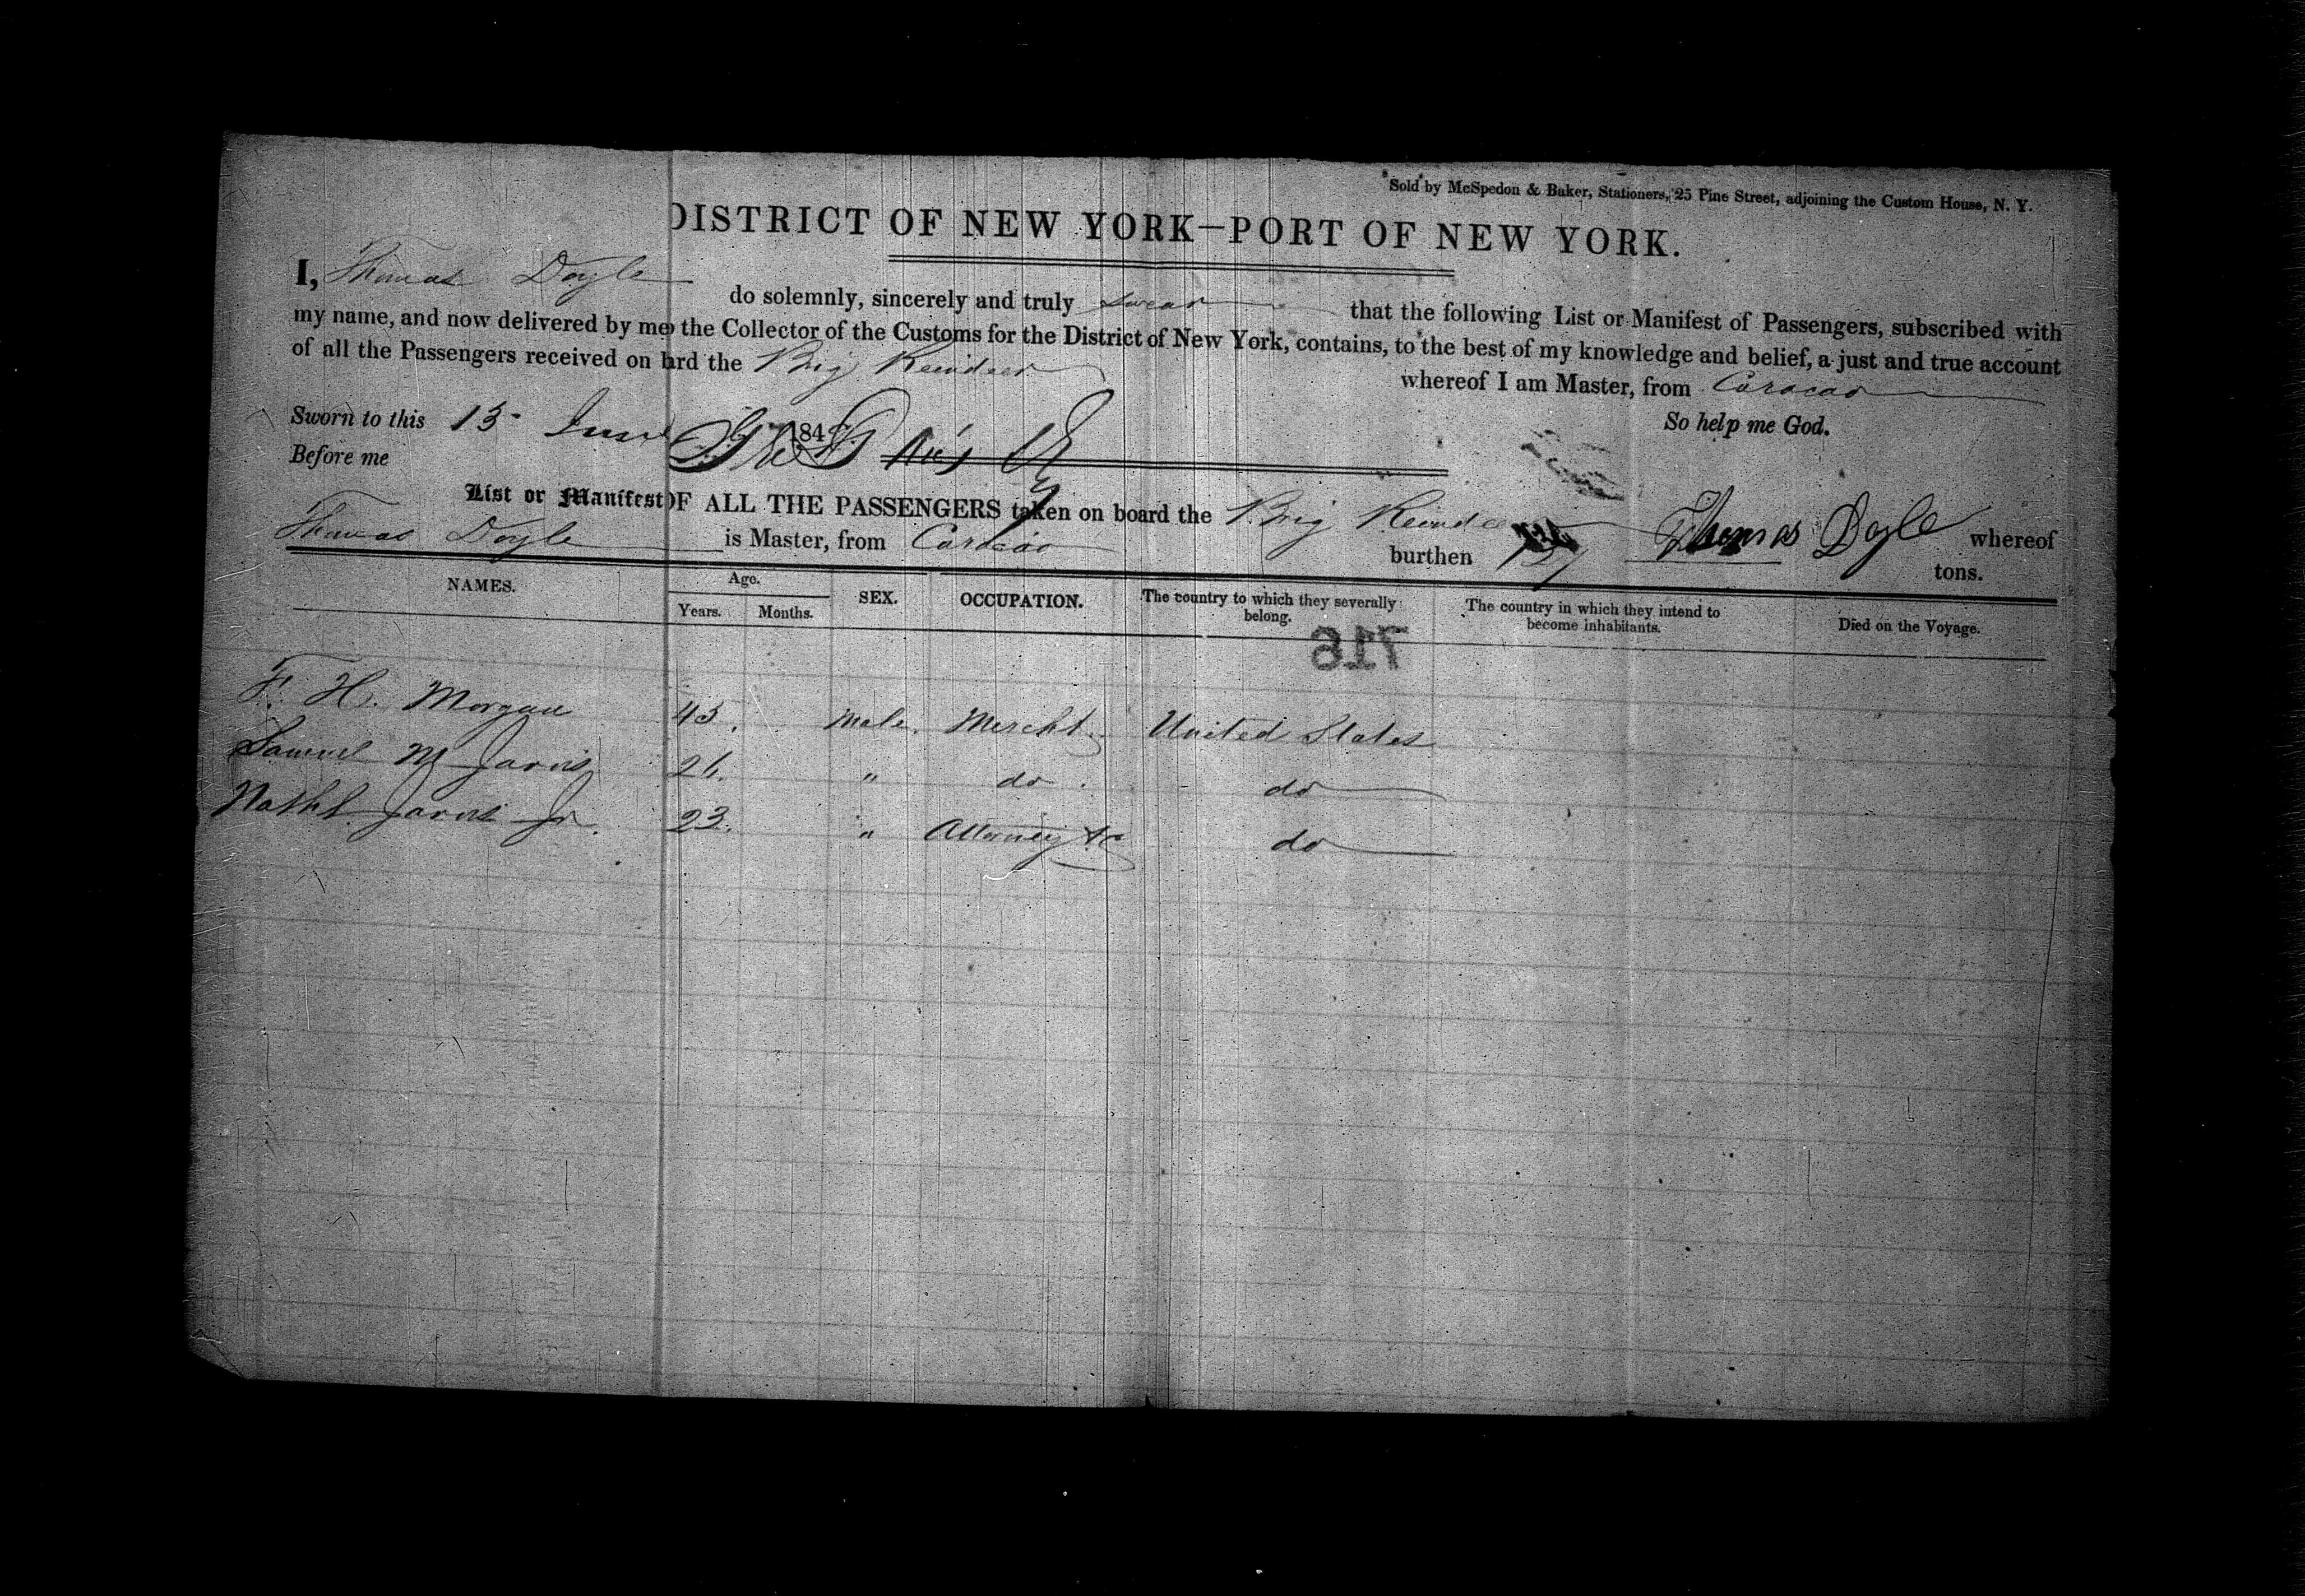 Sold by McSpedon & Baker, Stationers, 25 Pine Street, adjoining the Custom House, N. Y.
DISTRICT OF NEW YORK—PORT OF NEW YORK.
I, Thomas Doyle do solemnly, sincerely and truly swear that the following List or Manifest of Passengers, subscribed with
my name, and now delivered by me the Collector of the Customs for the District of New York, contains, to the best of my knowledge and belief, a just and true account
of all the Passengers received on ard the Brig Reindeer whereof I am Master, from Curacao
So help me God.
Sworn to this 13 June 184
Before me
Thomas Doyle
List or Manifest OF ALL THE PASSENGERS taken on board the Brig Reindeer whereof
Thomas Doyle is Master, from Curacao burthen tons.
NAMES. Age. Years. Months. SEX. OCCUPATION. The country to which they severally belong. The country in which they intend to become inhabitants. Died on the Voyage.
716
F. H. Morgan 43. Male. Mercht. United States
Samuel M Jarvis 26. " do. do
Nathl. Jarvis Jr. 23. " Attorney &c do